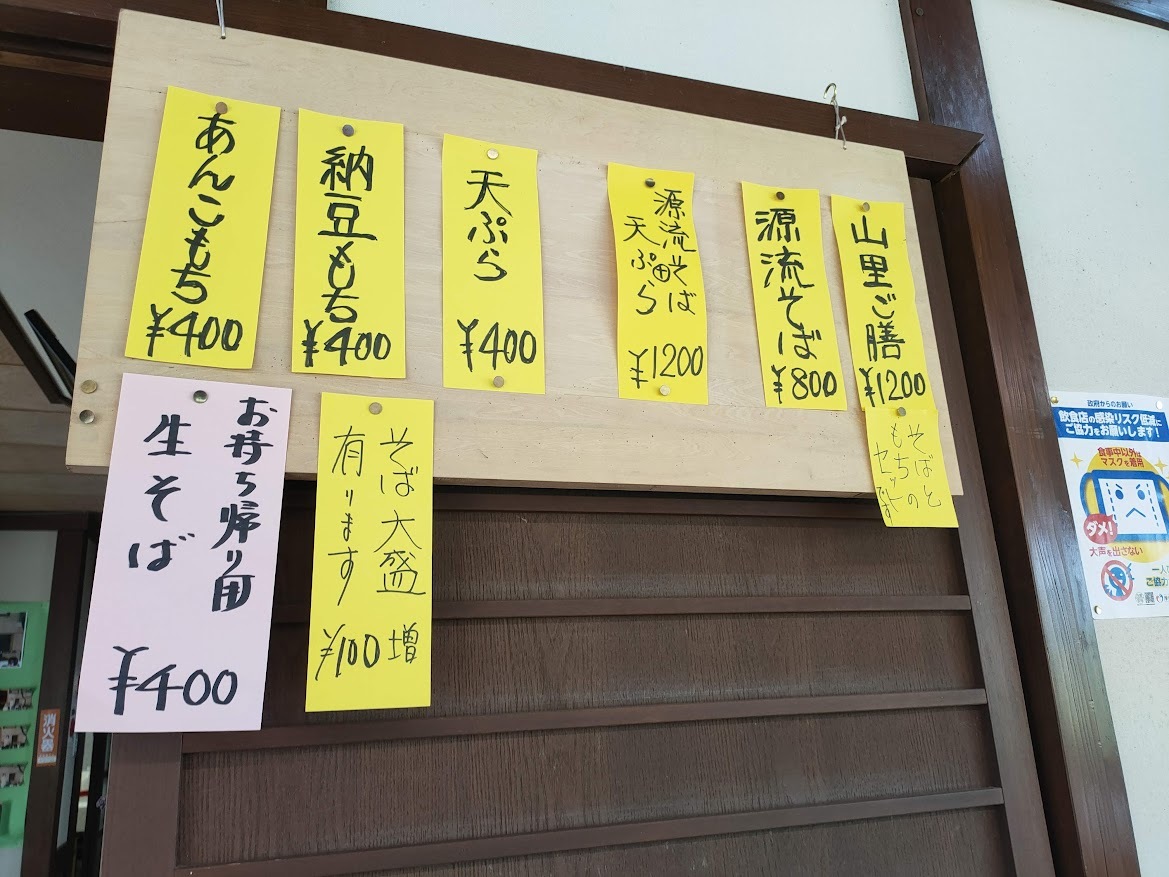 山里ご膳
¥1200
そばと
もちの
セットです
源流そば
¥800
源流そば
天ぷら
¥1200
天ぷら
¥400
納豆もち
¥400
あんこもち
¥400
そば大盛
有ります
¥100増
お持ち帰り用
生そば
¥400
政府からのお願い
飲食店の感染リスク低減に
ご協力をお願いします!
食事中以外は
マスクを着用
ダメ!
大声を出さない
一人
ご協力
消火器